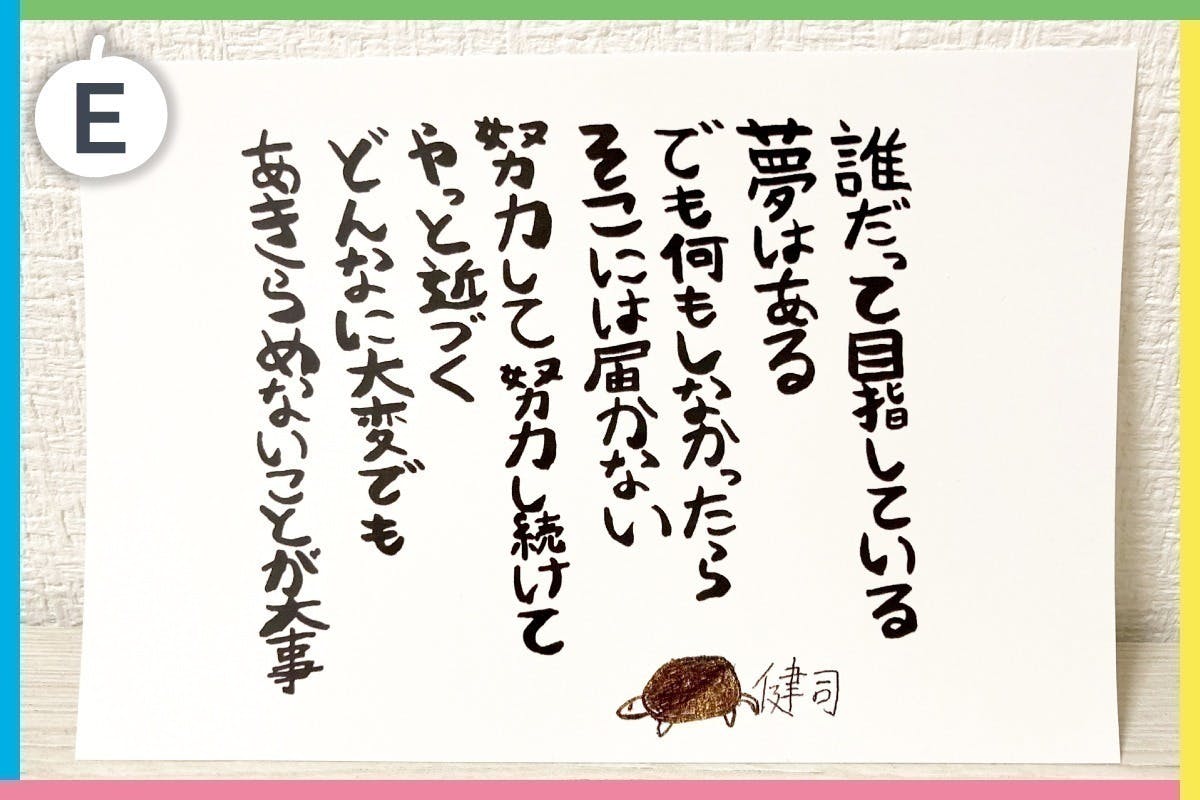 E
誰だって目指している
夢はある
でも何もしなかったら
そこには届かない
努力して努力し続けて
やっと近づく
どんなに大変でも
あきらめないことが大事
健司